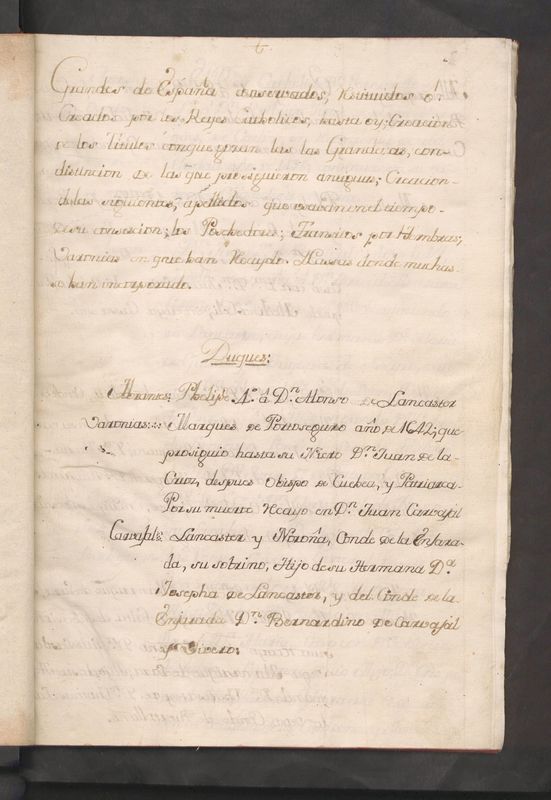 Grandes de España conservados, reunidos o
Creados por los Reyes Catholicos, hasta oy; Creacion
de los Titulos con que gozan las Grandezas, con
distincion de las que prosiguieron antiguas; Creacion
de las siguientes, apellidos que usaban en el tiempo
de su concesion; los Posehedores; Transitos por hembras;
Varonias en que han Recaydo. Y Casas donde muchas
se han incorporado.
Duques:
Abrantes; Phelipe 4.º â D.n Alonso de Lancaster
Varonias:: Marques de Portoseguro año de 1642; que
prosiguio hasta su Nieto D.n Juan de la
Cruz, despues Obispo de Cuenca, y Patriarca.
Por su muerte Recayo en D.n Juan Carvajal
Carvajal: Lancaster y Noroña, Conde de la Enjara-
da, su sobrino, Hijo de su Hermana D.a
Josepha de Lancaster, y del Conde de la
Enjarada D.n Bernardino de Carvajal
y Vivero: